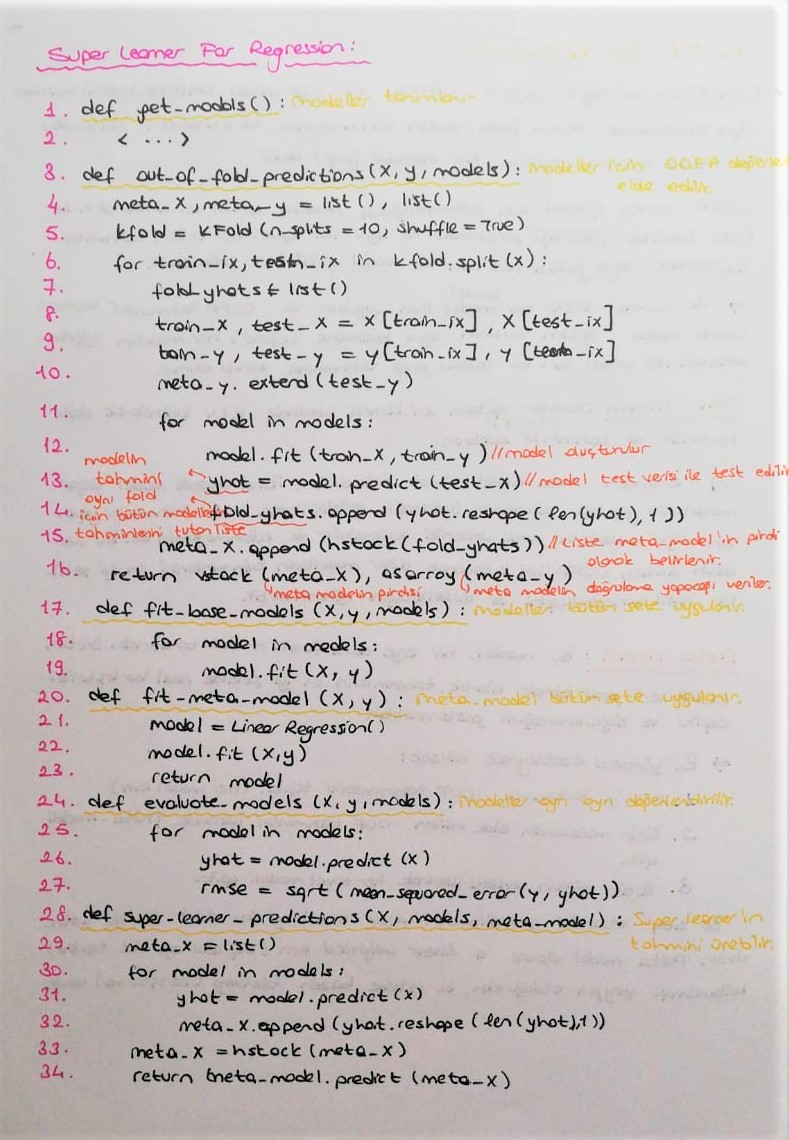 Super Learner For Regression:
1. def get_models(): modeller tanımlanır
2. < ... >
3. def out_of_fold_predictions(X, y, models): modeller icin OOFP değerleri
elde edilir.
4. meta_X, meta_y = list(), list()
5. kfold = KFold (n_splits = 10, shuffle = True)
6. for train_ix, test_ix in kfold.split (X):
7. fold_yhats = list()
8. train_X, test_X = X [train_ix], X [test_ix]
9. train_y, test_y = y [train_ix], y [test_ix]
10. meta_y. extend (test_y)
11. for model in models:
12. model.fit (train_X, train_y) //model oluşturulur
modelin
13. tahmini yhat = model.predict (test_X) //model test verisi ile test edilir
aynı fold
14. için bütün modellerin fold_yhats.append (yhat.reshape (len(yhat), 1))
15. tahminlerini tutan liste
meta_X.append (hstack (fold_yhats)) //Liste meta-model'in pirdi
olarak belirlenir.
16. return vstack (meta_X), asarray (meta_y)
meta modelin pirdisi meta modelin doğrulama yapacağı veriler.
17. def fit-base-models (X, y, models): modelleri bütün sete uygulanır.
18. for model in models:
19. model.fit (X, y)
20. def fit-meta-model (X, y): meta-model bütün sete uygulanır.
21. model = Linear Regression()
22. model.fit (X,y)
23. return model
24. def evaluate_models (X, y, models): modeller ayrı ayrı değerlendirilir.
25. for model in models:
26. yhat = model.predict (X)
27. rmse = sqrt (mean_squared_error (y, yhat))
28. def super-learner_predictions (X, models, meta-model): Super-learner'in
tahmini üretilir.
29. meta_X = list()
30. for model in models:
31. yhat = model.predict (X)
32. meta_X.append (yhat.reshape (len (yhat), 1))
33. meta_X = hstack (meta_X)
34. return meta_model.predict (meta_X)